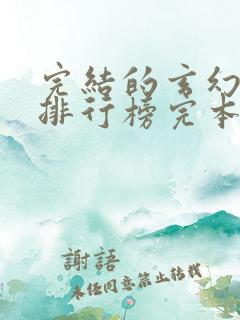 完結的玄幻
排行榜完本
謝語
未经同意禁止转载